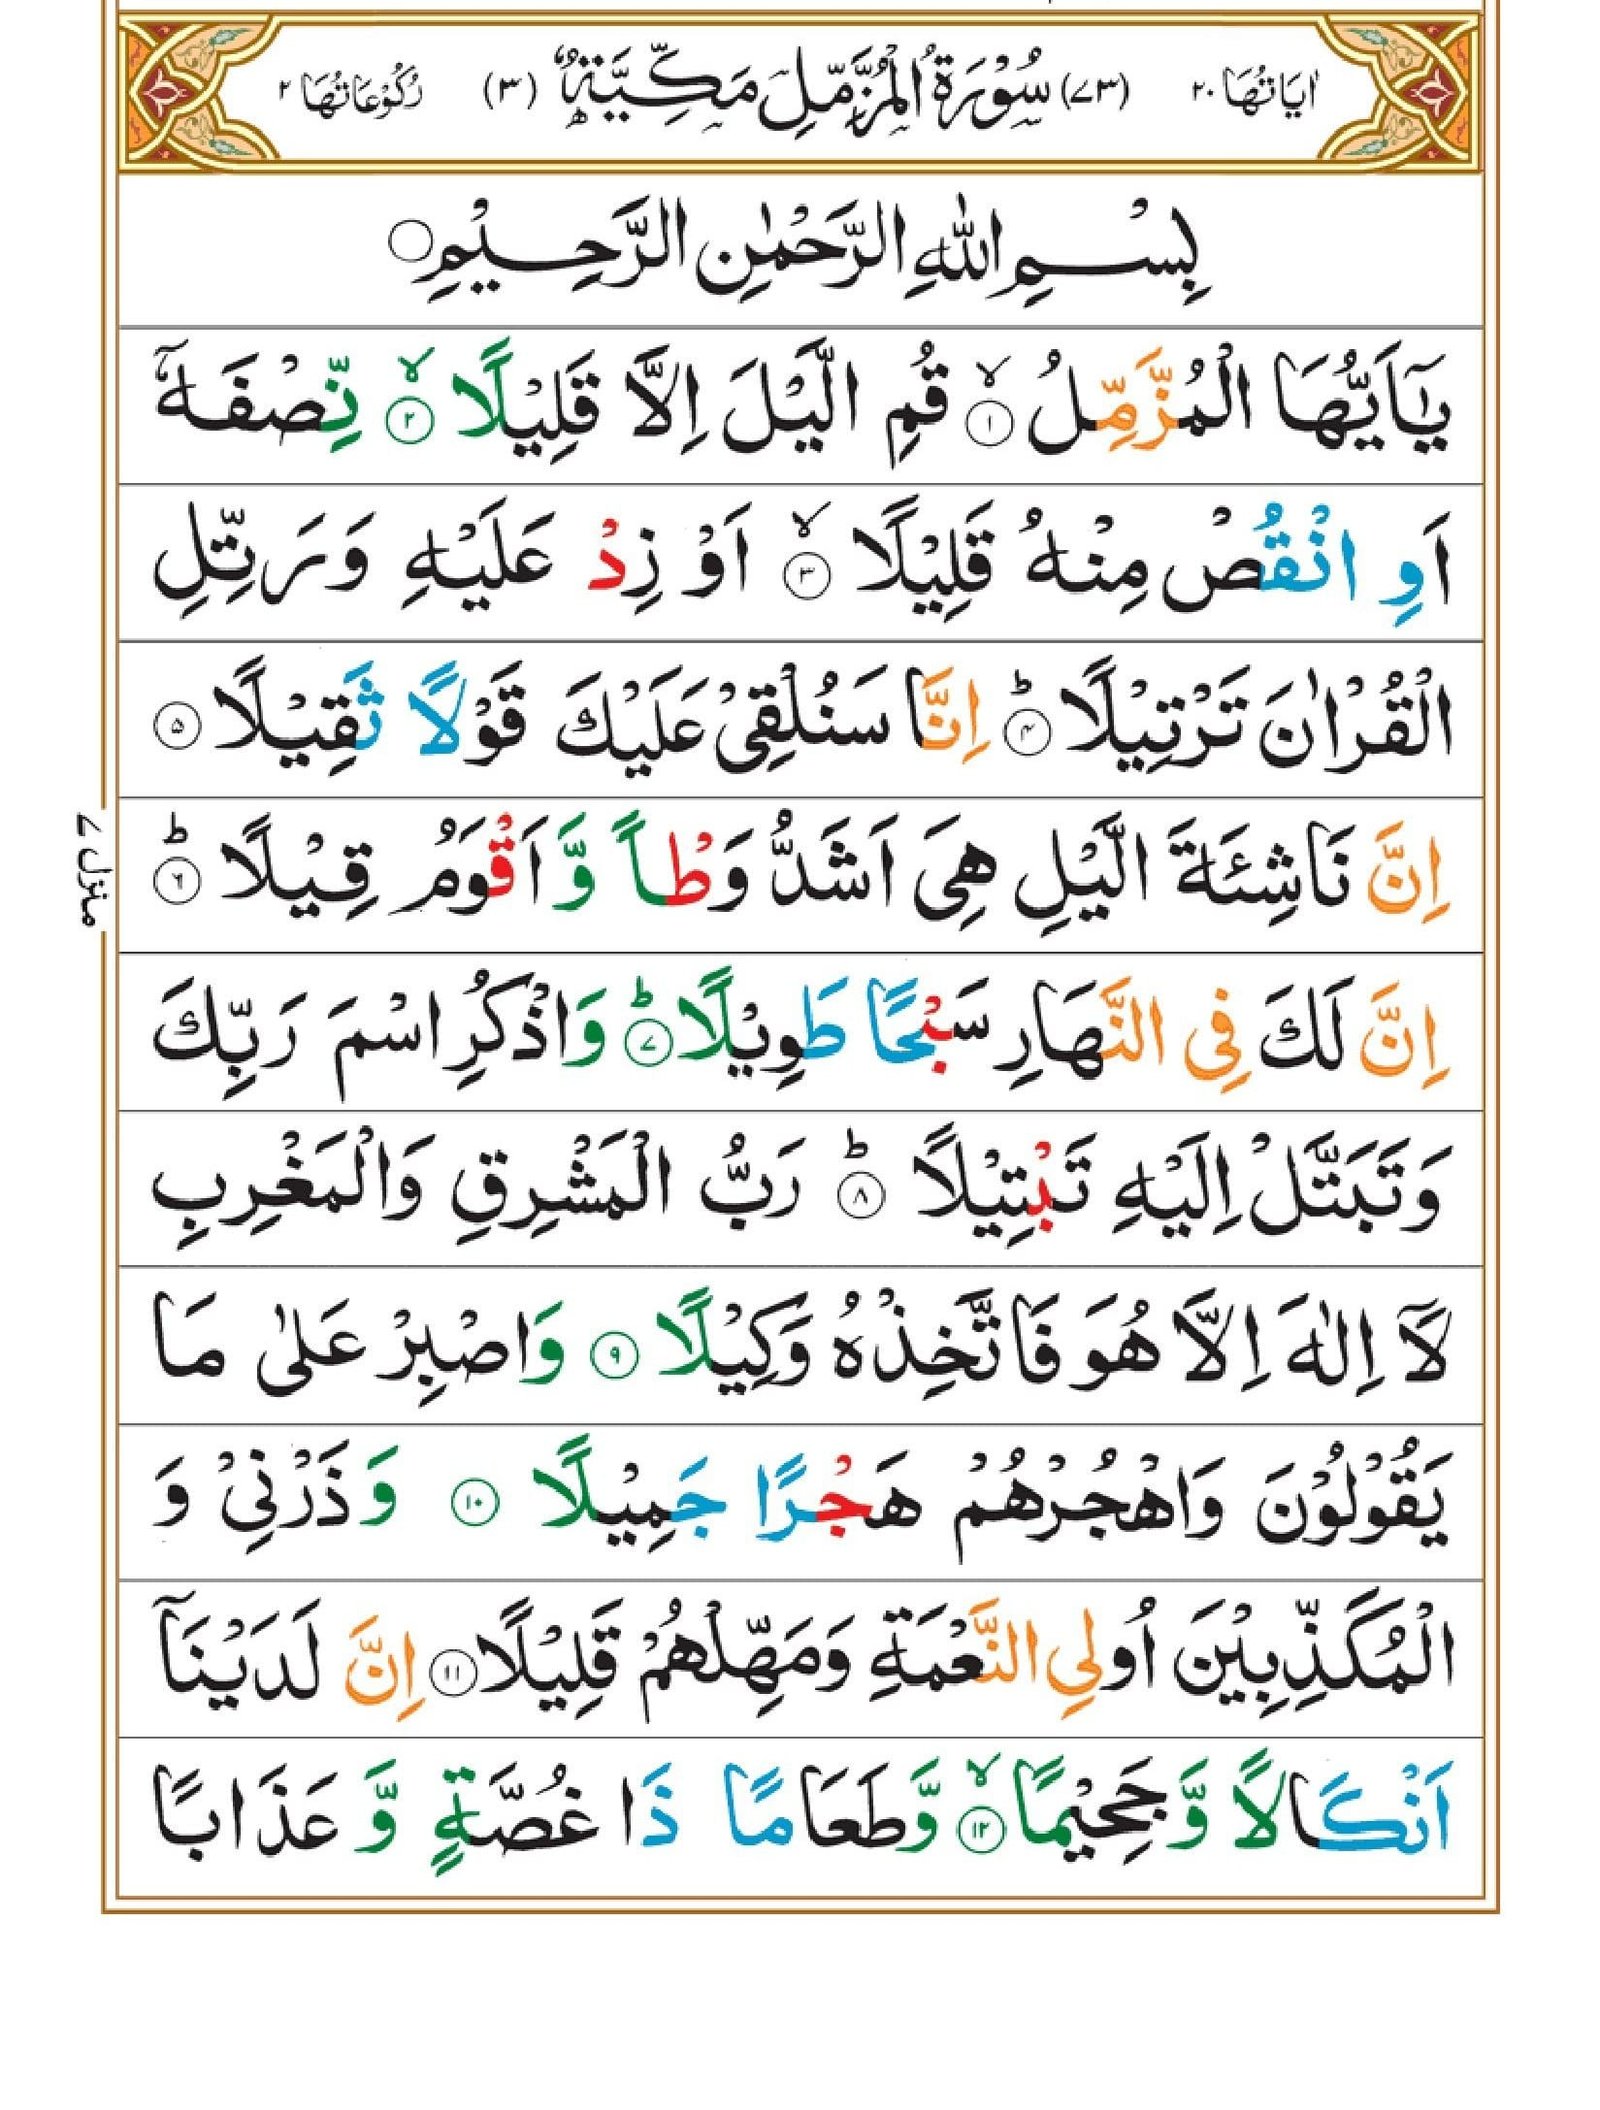 اٰيَاتُهَا ٢٠ (٧٣) سُوْرَةُ الْمُزَّمِّلِ مَكِّيَّةٌ (٣) رُكُوْعَاتُهَا ٢
بِسْمِ اللّٰهِ الرَّحْمٰنِ الرَّحِيْمِ
يٰۤاَيُّهَا الْمُزَّمِّلُ ۙ‏﴿۱﴾ قُمِ الَّيْلَ اِلَّا قَلِيْلًا ۙ‏﴿۲﴾ نِّصْفَهٗۤ
اَوِ انْقُصْ مِنْهُ قَلِيْلًا ۙ‏﴿۳﴾ اَوْ زِدْ عَلَيْهِ وَرَتِّلِ
الْقُرْاٰنَ تَرْتِيْلًا ؕ‏﴿۴﴾ اِنَّا سَنُلْقِىْ عَلَيْكَ قَوْلًا ثَقِيْلًا ﴿۵﴾
اِنَّ نَاشِئَةَ الَّيْلِ هِىَ اَشَدُّ وَطْاً وَّاَقْوَمُ قِيْلًا ؕ‏﴿۶﴾
اِنَّ لَكَ فِى النَّهَارِ سَبْحًا طَوِيْلًا ؕ‏﴿۷﴾ وَاذْكُرِ اسْمَ رَبِّكَ
وَتَبَتَّلْ اِلَيْهِ تَبْتِيْلًا ؕ‏﴿۸﴾ رَبُّ الْمَشْرِقِ وَالْمَغْرِبِ
لَاۤ اِلٰهَ اِلَّا هُوَ فَاتَّخِذْهُ وَكِيْلًا ﴿۹﴾ وَاصْبِرْ عَلٰى مَا
يَقُوْلُوْنَ وَاهْجُرْهُمْ هَجْرًا جَمِيْلًا ﴿۱۰﴾ وَذَرْنِىْ وَ
الْمُكَذِّبِيْنَ اُولِى النَّعْمَةِ وَمَهِّلْهُمْ قَلِيْلًا ﴿۱۱﴾ اِنَّ لَدَيْنَاۤ
اَنْكَالًا وَّجَحِيْمًا ۙ‏﴿۱۲﴾ وَّطَعَامًا ذَا غُصَّةٍ وَّعَذَابًا
منزل ٧